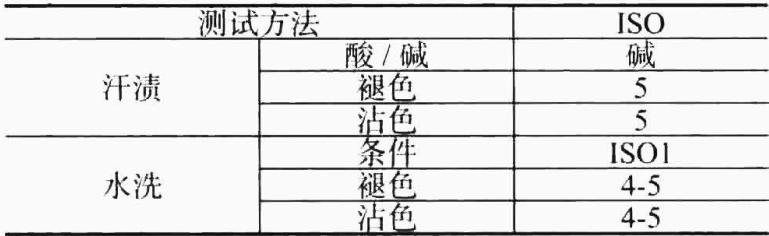 测试方法 ISO
汗渍 酸 / 碱 碱
褪色 5
沾色 5
水洗 条件 ISO1
褪色 4-5
沾色 4-5